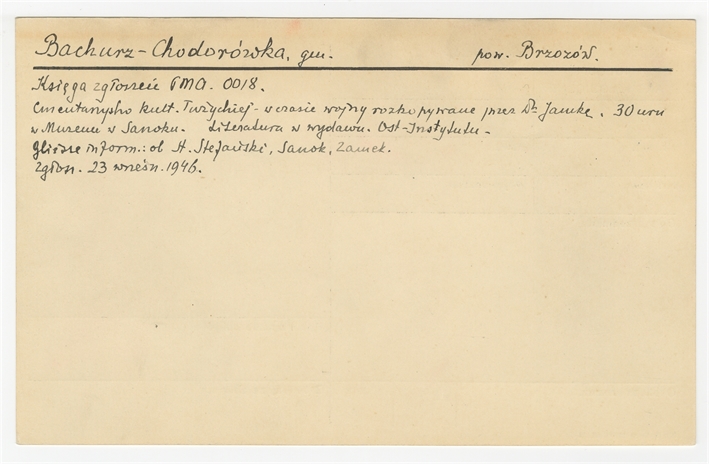 Bachurz-Chodorówka, gm. pow. Brzozów.
Księga zgłoszeń PMA. 0018.
Cmentarzysko kult. Łużyckiej - w czasie wojny rozkopywane przez Dr. Jamkę. 30 urn
w Muzeum w Sanoku. Literatura w wydawn. Ost-Instytutu -
Bliższe inform.: ob St. Stefański, Sanok, Zamek.
Zgłosz. 23 wrześn. 1946.